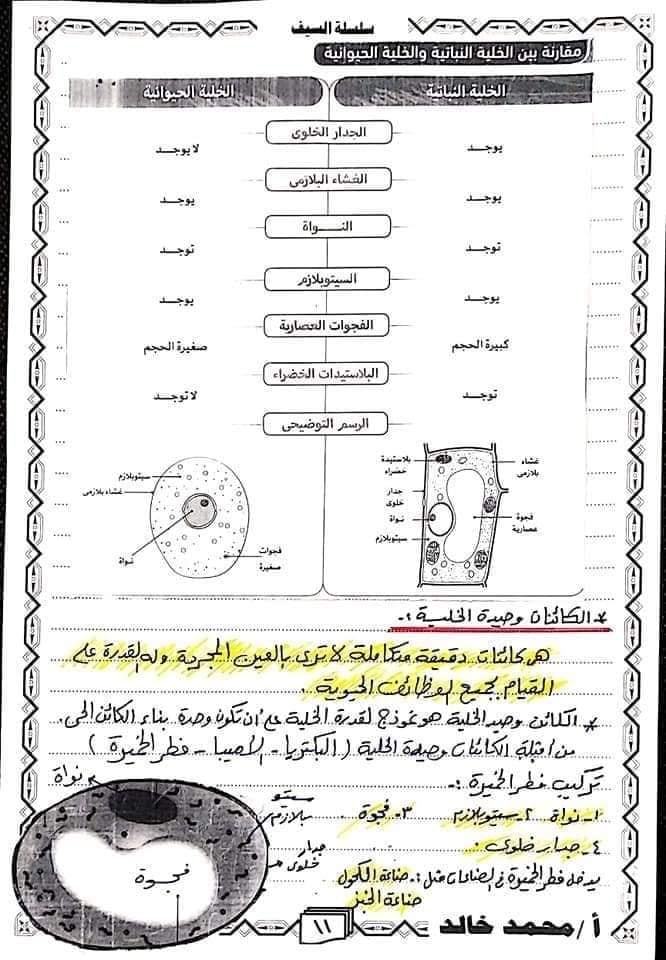 سلسلة السيف
مقارنة بين الخلية النباتية والخلية الحيوانية
الخلية النباتية الخلية الحيوانية
الجدار الخلوى
يوجد لا يوجد
الغشاء البلازمى
يوجد يوجد
النواة
توجد توجد
السيتوبلازم
يوجد يوجد
الفجوات العصارية
كبيرة الحجم صغيرة الحجم
البلاستيدات الخضراء
توجد لا توجد
الرسم التوضيحى
غشاء بلازمى
فجوة عصارية
بلاستيدة خضراء
جدار خلوى
نواة
سيتوبلازم
سيتوبلازم
غشاء بلازمى
نواة
فجوات صغيرة
* الكائنات وحيدة الخلية :-
هى كائنات دقيقة متكاملة لا ترى بالعين المجردة ولها قدرة على
القيام بجميع الوظائف الحيوية .
* الكائن وحيد الخلية هو نموذج لقدرة الخلية على أن تكون وحدة بناء الكائن الحى.
من أمثلة الكائنات وحيدة الخلية ( البكتريا - الأميبا - فطر الخميرة )
تركيب فطر الخميرة :-
١- نواة ٢- سيتوبلازم ٣- فجوة
٤- جدار خلوى
يدخل فطر الخميرة فى الصناعات مثل :- صناعة الكحول
صناعة الخبز
نواة
سيتو
بلازم
جدار
خلوى
فجوة
أ / محمد خالد
١١